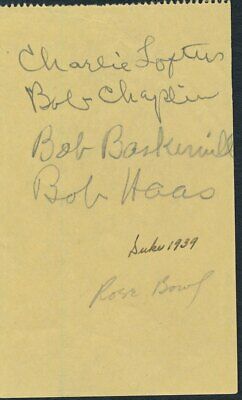 Charlie Loftus
Bob Chaplin
Bob Baskervill
Bob Haas
Duke 1939
Rose Bowl